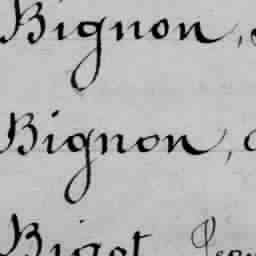 Bignon,
Bignon,
Bigot